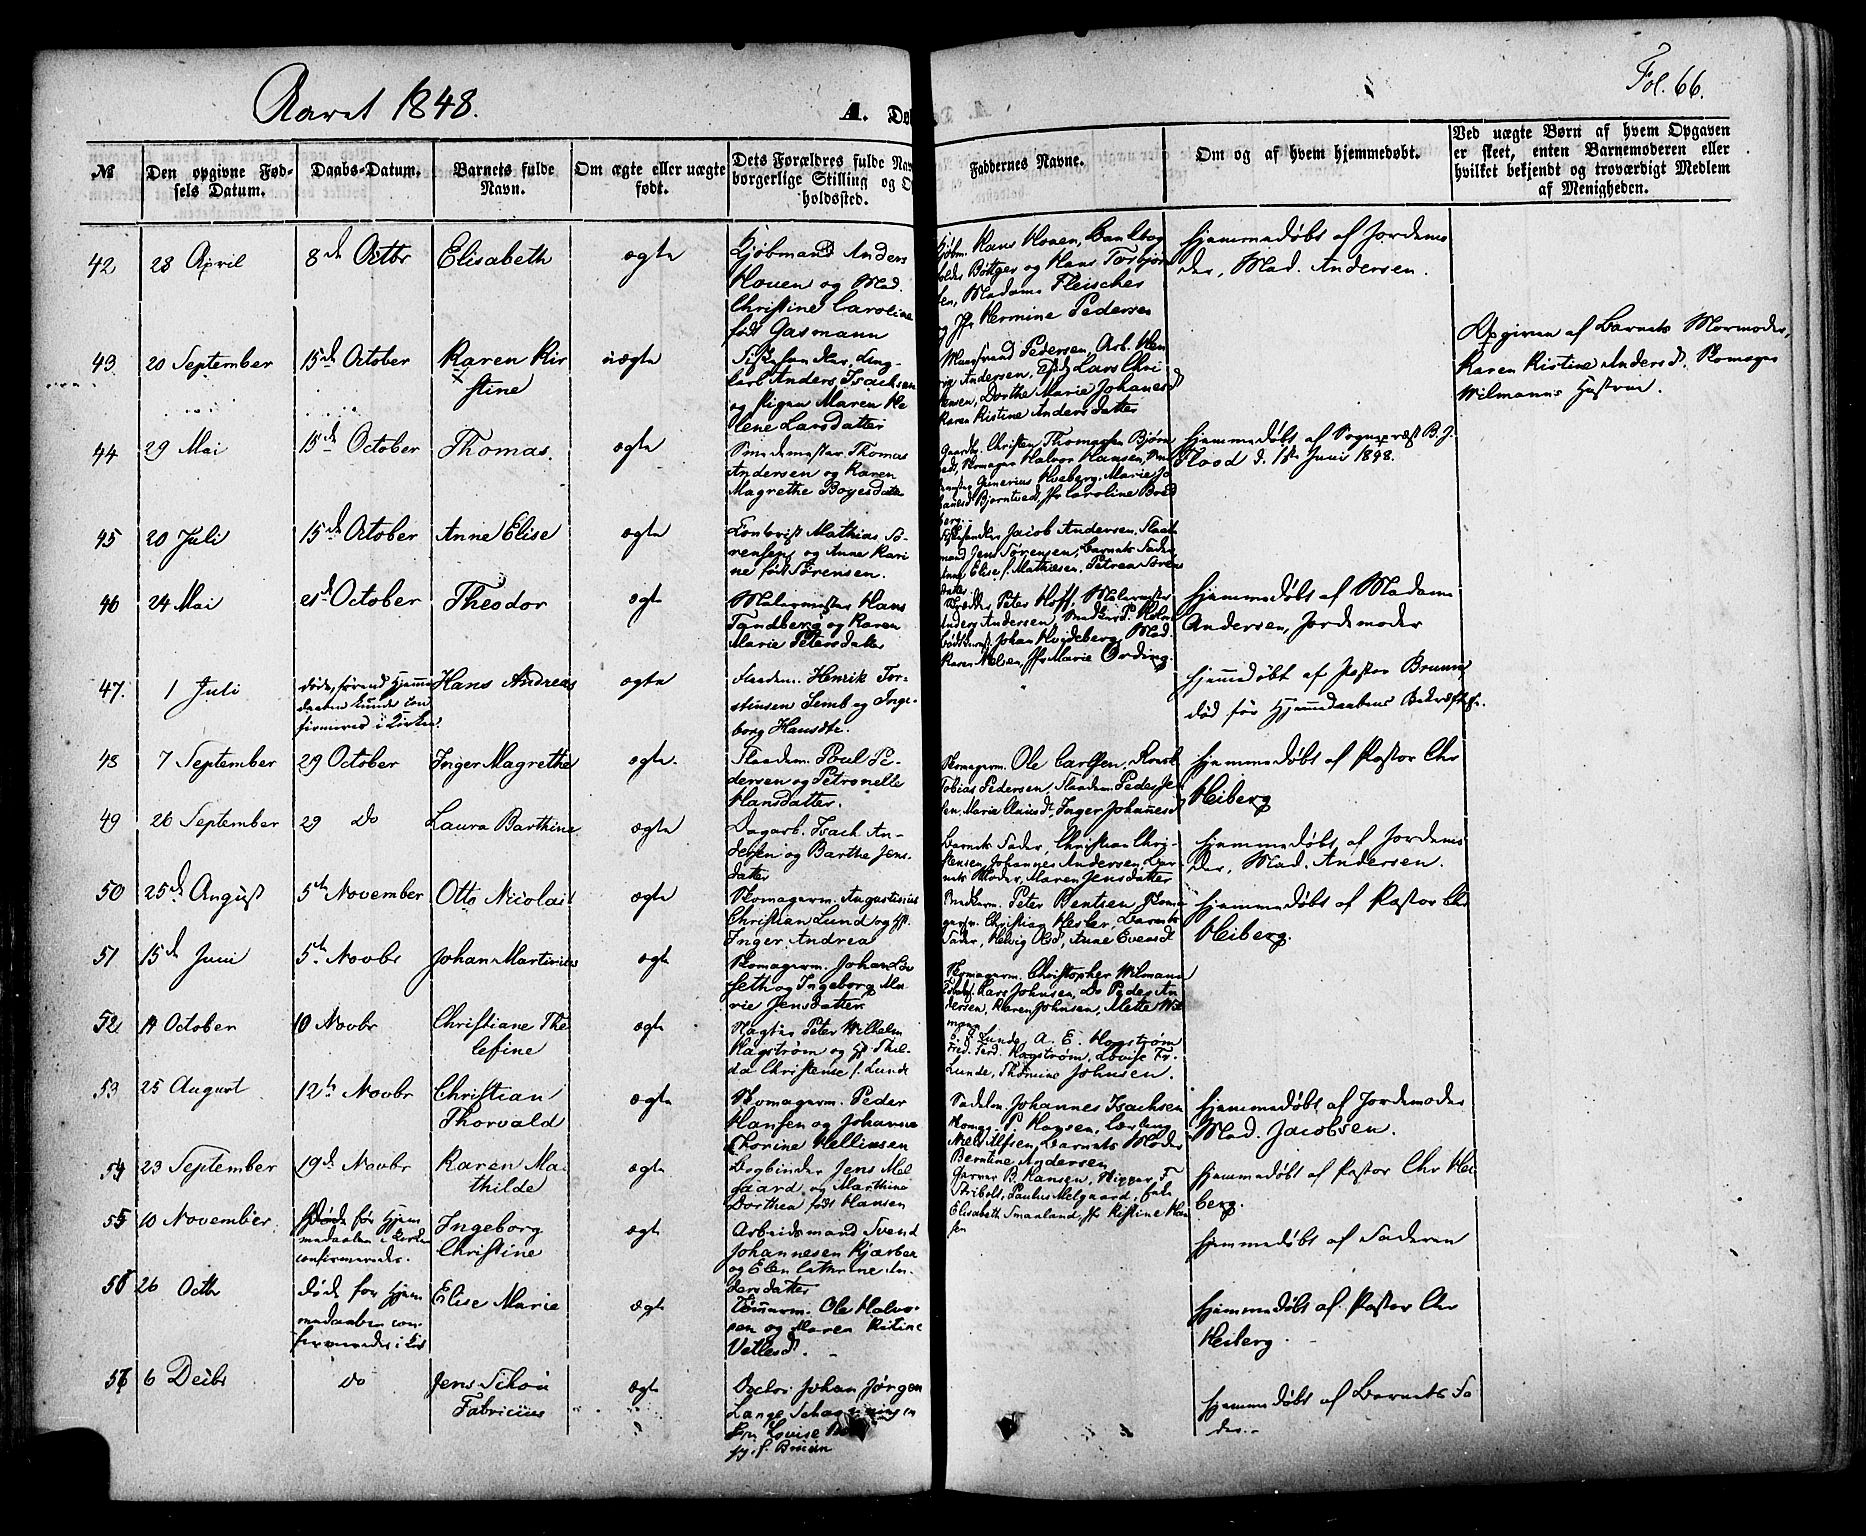 Aaret 1848.
A.
Fol. 66.
№
Den opgivne Fød-
sels Datum.
Daabs-Datum.
Barnets fulde
Navn.
Om ægte eller uægte
født.
Dets Forældres fulde
borgerlige Stilling og
holdssted.
Faddernes Navne.
Om og af hvem hjemmedøbt.
Ved uægte Børn af hvem Opgaven
er skeet, enten Barnemoderen eller
hvilket bekjendt og troværdigt Medlem
af Menigheden.
42
28 April
8de Octbr
Elisabeth
ægte
Kjøbmand Anders
Houen og Mad.
Christine Caroline
født Gasmann
Kjøbm. Hans Houen,
Bøttger og Hans Torbjørn
sen, Madame Fleischer
og Jfr Hermine Pedersen
Hjemmedøbt af Jordemo
der, Mad. Andersen.
43
20 September
15de October
Karen Kir
stine
uægte
Anders Isachsen
og Pigen Maren He
lene Larsdatter
Pedersen, Arb. Hen
rik Andersen, Lars Chri
stensen, Dorthe Marie Johanesd
Karen Kistine Andersdatter
Opgiven af Barnets Mormoder,
Karen Kistine Andersd. Skomager
Wilmanns Hustrue.
44
29 Mai
15de October
Thomas.
ægte
Smedemester Thomas
Andersen og Karen
Magrethe Boyesdatter
Christen Thomassen Bjørn
Skomager Halvor Hansen,
Gunerius Hoeberg, Marie Jo
hanesd Bjørntvedt, Jfr Caroline Bred
berg.
Hjemmedøbt af Sognepræst B. J.
Flood d. 1ste Juni 1848.
45
20 Juli
15de October
Anne Elise
ægte
Mathias Sø-
rensen og Anne Kari
ne født Sørensen.
Jacob Andersen,
Jens Sørensen, Barnets Fader,
Anne Elise f. Mathisen, Petrea Sørens
datter
46
24 Mai
21de October
Theodor
ægte
Malermester Hans
Tandberg og Karen
Marie Petersdatter
Peter Hoff, Malermester
Anders Andersen,
Johan Hvideberg, Mad.
Karen Nielsen, Jfr Marie Ording.
Hjemmedøbt af Madame
Andersen, Jordemoder
47.
1 Juli
døde, førend Hjemme
daaben kunde con
firmeres i Kirken.
Hans Andreas
ægte
Henrik Tor-
stensen Semb og Inge-
borg Hansdtr.
Hjemmedøbt af Pastor Bruun,
død før Hjemmedaabens Bekræftelse.
48
7 September
29 October
Inger Magrethe
ægte.
Poul Pe-
dersen og Petronelle
Hansdatter.
Skomagerm. Ole Carlsen,
Tobias Pedersen, Peder Jen
sen, Marie Clausd, Inger Johannesd
Hjemmedøbt af Pastor Chr
Heiberg
49
26 September
29 Do
Laura Barthine
ægte
Dagarb. Isach An-
dersen og Barthe Jens-
datter
Barnets Fader, Christian Chri-
stensen, Johannes Andersen, Bar-
nets Moder, Maren Jensdatter
Hjemmedøbt af Jordemo
der, Mad. Andersen.
50
25de August
5te November
Otto Nicolai
ægte
Skomagerm. Augustinius
Christian Lund og H.
Inger Andrea
Snedkerm. Peter Bentsen, Skoma
gersv. Christian Hesler, Barnets
Fader, Helvig Olsd, Anne Evensd
Hjemmedøbt af Pastor Chr
Heiberg.
51
15de Juni
5te Novbr
Johan Martinius
ægte
Skomagerm. Johan Bo
seth og Ingeborg Ma-
rie Jensdatter
Skomagerm. Christopher Wilmann
Lars Johnsen, Do Peder An
dersen, Karen Johnsen, Mette Wil
mann
52
14 October
10 Novbr
Christiane The
lefine
ægte
Peter Wilhelm
Hagstrøm og H. Thil-
da Christense f. Lunde
Lunde, A. E. Hagstrøm
Fred. Ferd. Hagstrøm, Lovise Fr.
Lunde, Thomine Johnsen.
53
25 August
12te Novbr
Christian
Thorvald
ægte
Skomagerm. Peder
Hansen og Johanne
Thorine Nelliusen
Sadelm. Johannes Isachsen
P. Hansen,
Niels Alfsen, Barnets Moder
Berntine Andersen
Hjemmedøbt af Jordemoder
Mad. Jacobsen.
54
23 September
19de Novbr
Karen Ma
thilde
ægte
Bogbinder Jens Mel
gaard og Marthine
Dorthea født Hansen
Garver B. Hansen,
Stribolt, Paulus Melgaard,
Elisabeth Smaaland, Jfr Kistine Han
sen
Hjemmedøbt af Pastor Chr Hei
berg.
55
10 November
Døde før Hjem
medaaben i Kirken
confirmeredes.
Ingeborg
Christine
ægte
Arbeidsmand Svend
Johannesen Kjærber
og Elen Cathrine An
dersdatter
Hjemmedøbt af Faderen
56
26 Octb
døde før Hjem
medaaben con-
firmeredes i Kir
Elise Marie
ægte
Tømmerm. Ole Halvo
sen og Maren Kistine
Vetlesd.
Hjemmedøbt af Pastor Chr
Heiberg.
57
6 Decbr
Do
Jens Schou
Fabricius
ægte
Doctor Johan Jørgen
Lange
Fru Lovise
f. Bruun
Hjemmedøbt af Barnets Fa
der.